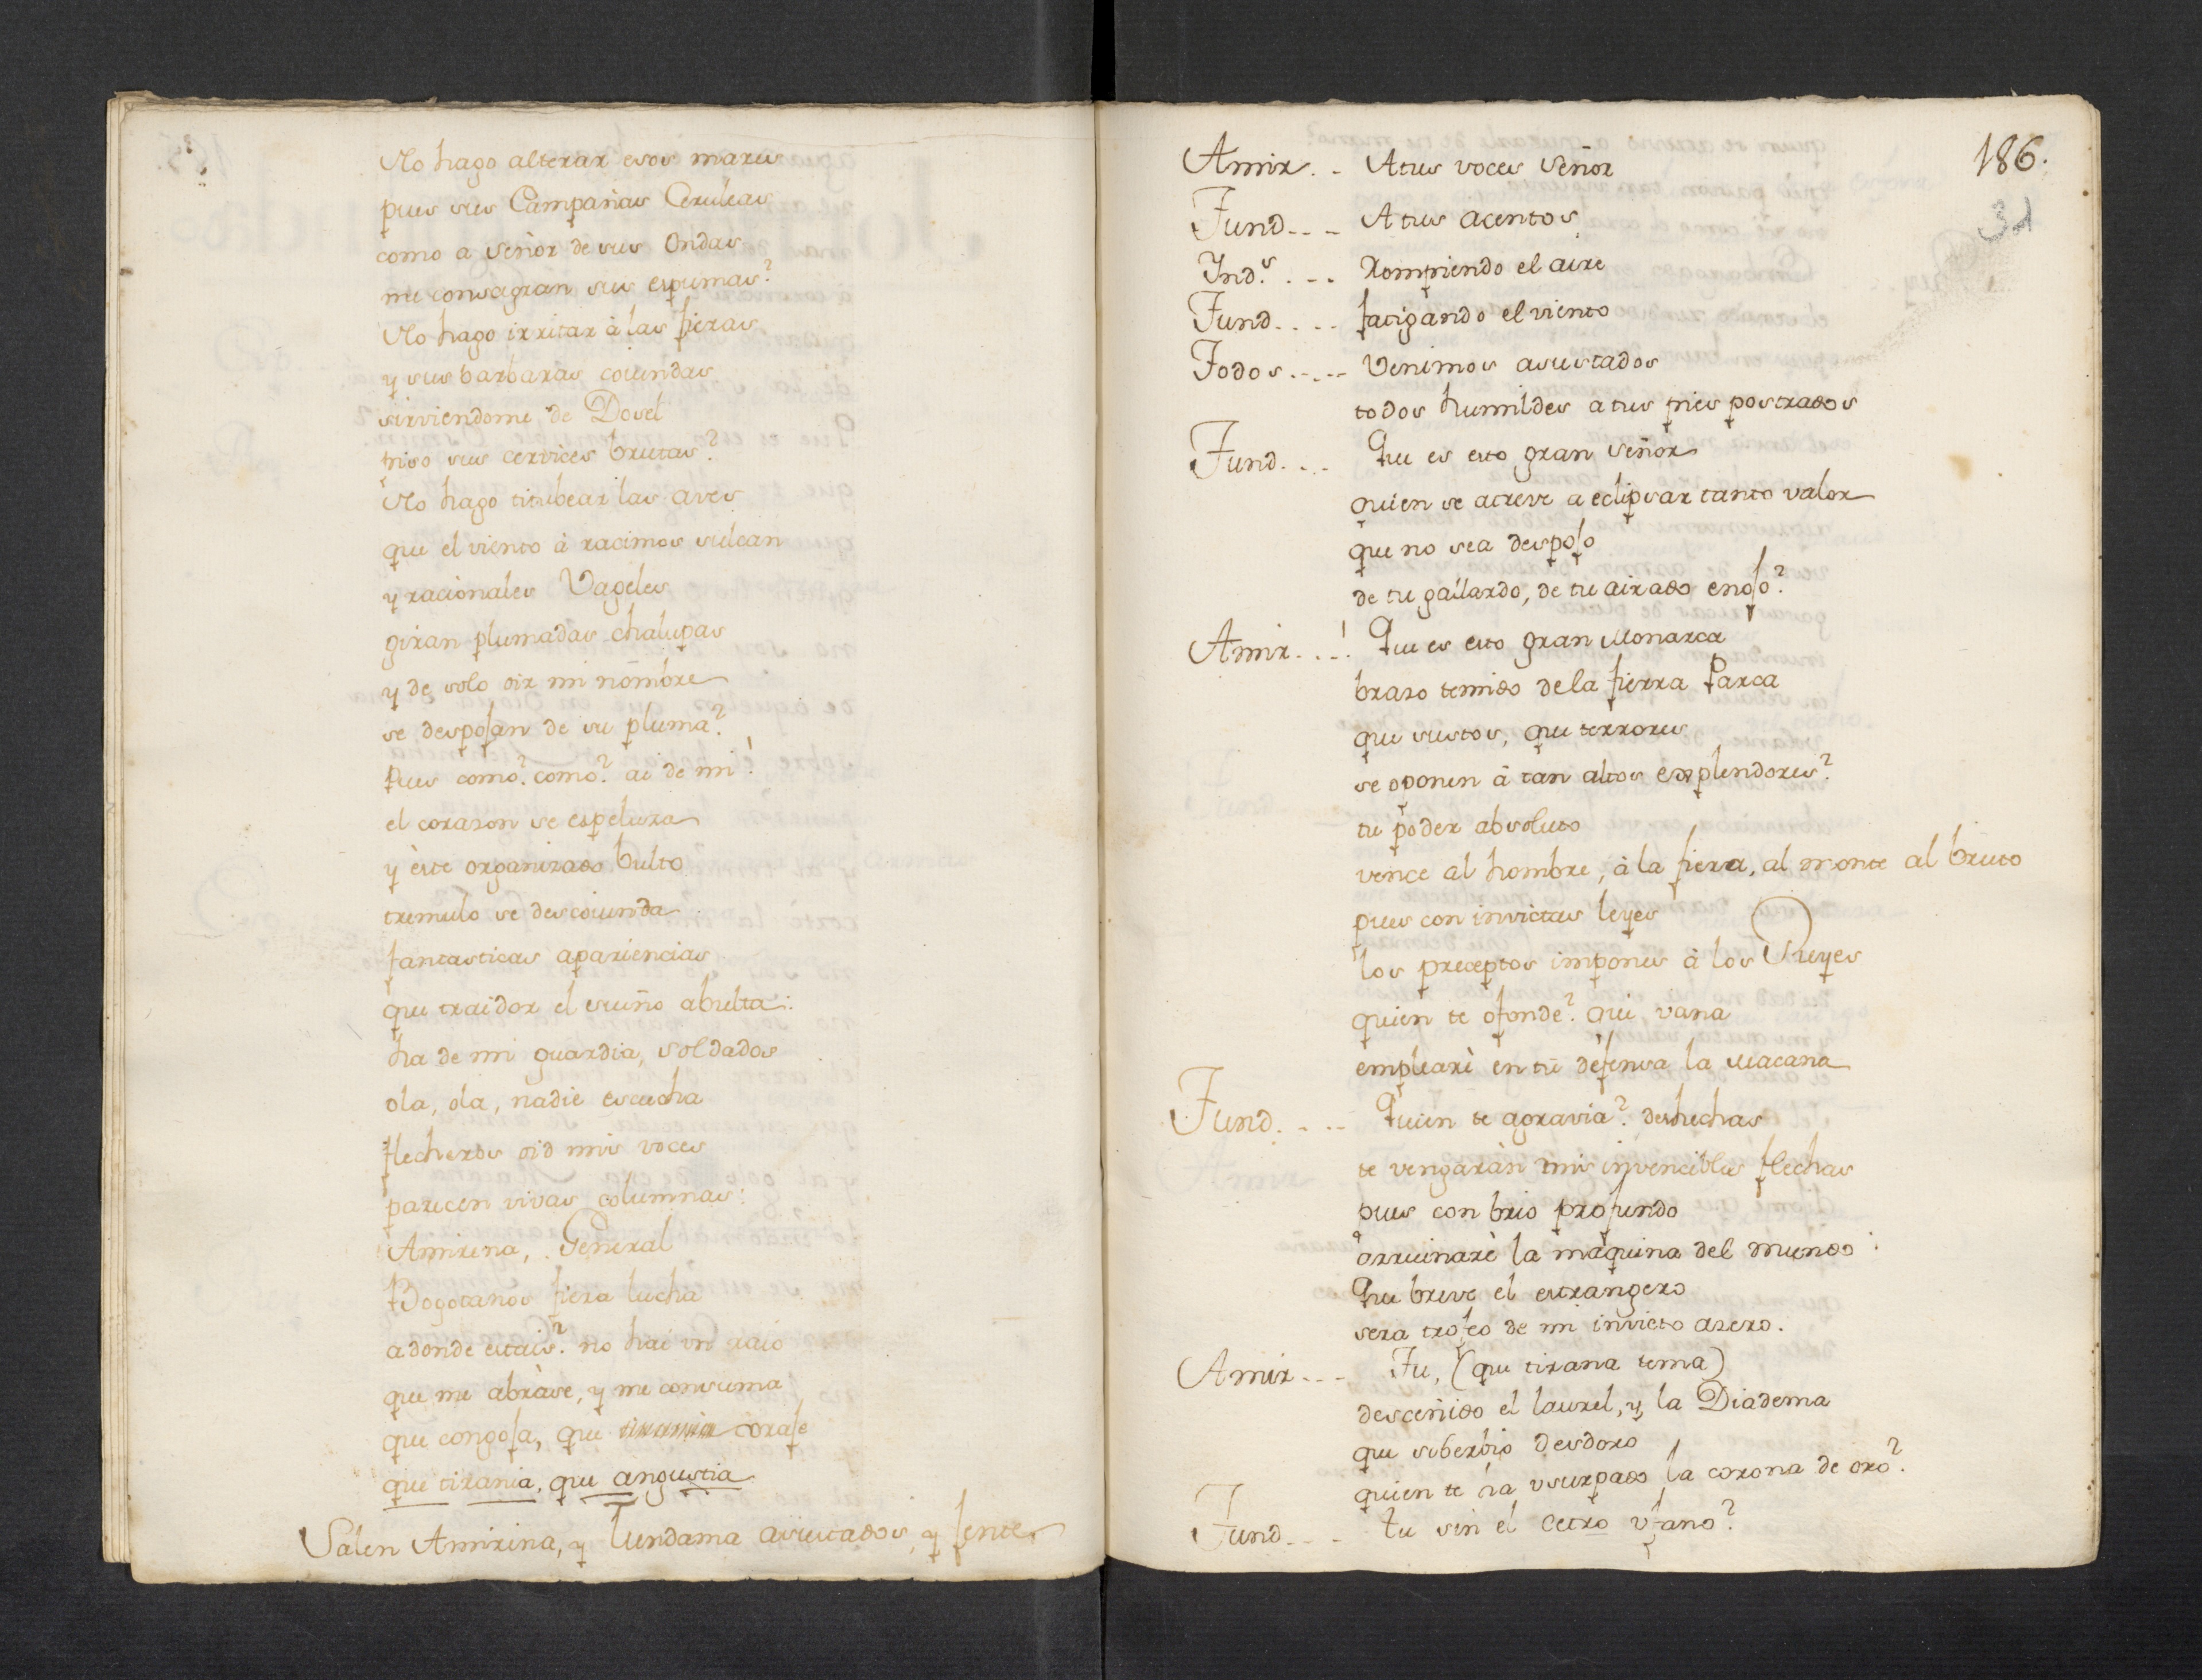 No hago alterar esos mares
pues sus Campañas Ceruleas
como a Señor de sus Ondas
me consagran sus espumas?
No hago irritar à las fieras
y sus barbaras coiundas
sirviendome de Dosel
piso sus cervices brutas?
No hago titubear las aves
que el viento à racimos sulcan
y racionales Vageles
giran plumadas chalupas
y de solo oir mi nombre
se despojan de su pluma?
Pues como? como? ai de mi!
el corason se espelusa
y èste organizado bulto
tremulo se descoiunda
fantasticas apariencias
que traidor el sueño abulta:
ha de mi guardia, soldados
ola, ola, nadie escucha
flecheros oid mis voces
parecen vivas columnas:
Amirena, General
Bogotanos fiera lucha
adonde estais? no hai un raio
que me abràse, y me consuma
que congoja, que coraje
que tirania, que angustia.
Salen Amirena, y Tundama asustados, y jente
186.
31
Amir. . - A tus voces Señor
Tund. - - - A tus acentos
Ind.s . - - Rompiendo el aire
Tund. . . . fatigando el viento
Todos . . - - - Venimos asustados
todos humildes a tus pies postrados
Tund. . . - Que es esto gran Señor
quien se atreve a eclipsar tanto valor
que no sea despojo
de tu gallardo, de tu airado enojo?
Amir. . . ! Que es esto gran Monarca
braso temido de la fierra Parca
que sustos, que terrores
se oponen à tan altos esplendores?
tu poder absoluto
vence al hombre, à la fiera, al monte al bruto
pues con invictas leyes
los preceptos impones à los Reyes
quien te ofende? qui vana
emplearè en tu defensa la Macana
Tund. . - - - Quien te agravia? deshechas
te vengaràn mis invencibles flechas
pues con brio profundo
arruinarè la maquina del mundo:
Que breve el estrangero
sera trofeo de mi invicto asero.
Amir - - - Tu, (que tirana tema)
desceñido el laurel, y la Diadema
que soberbio desdoro
quien te ha usurpado la corona de oro?
Tund. - - - tu sin el cetro ufano?